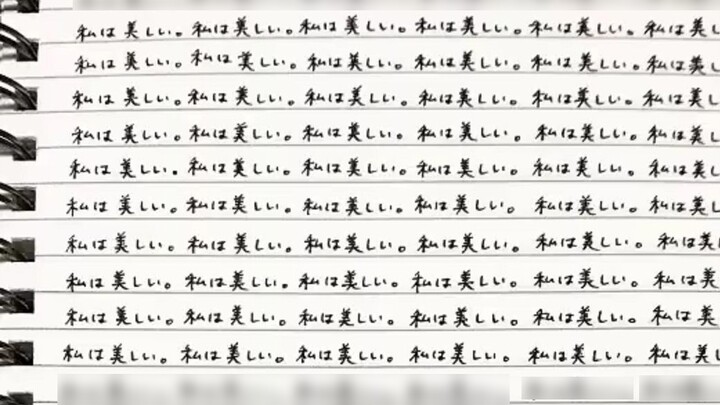 私は美しい。私は美しい。私は美しい。私は美しい。私は美しい。私は美し
私は美しい。私は美しい。私は美しい。私は美しい。私は美しい。私は美し
私は美しい。私は美しい。私は美しい。私は美しい。私は美しい。私は美し
私は美しい。私は美しい。私は美しい。私は美しい。私は美しい。私は美し
私は美しい。私は美しい。私は美しい。私は美しい。私は美しい。私は美し
私は美しい。私は美しい。私は美しい。私は美しい。私は美しい。私は美し
私は美しい。私は美しい。私は美しい。私は美しい。私は美しい。私は美
私は美しい。私は美しい。私は美しい。私は美しい。私は美しい。私は美
私は美しい。私は美しい。私は美しい。私は美しい。私は美しい。私は美
私は美しい。私は美しい。私は美しい。私は美しい。私は美しい。私は美し